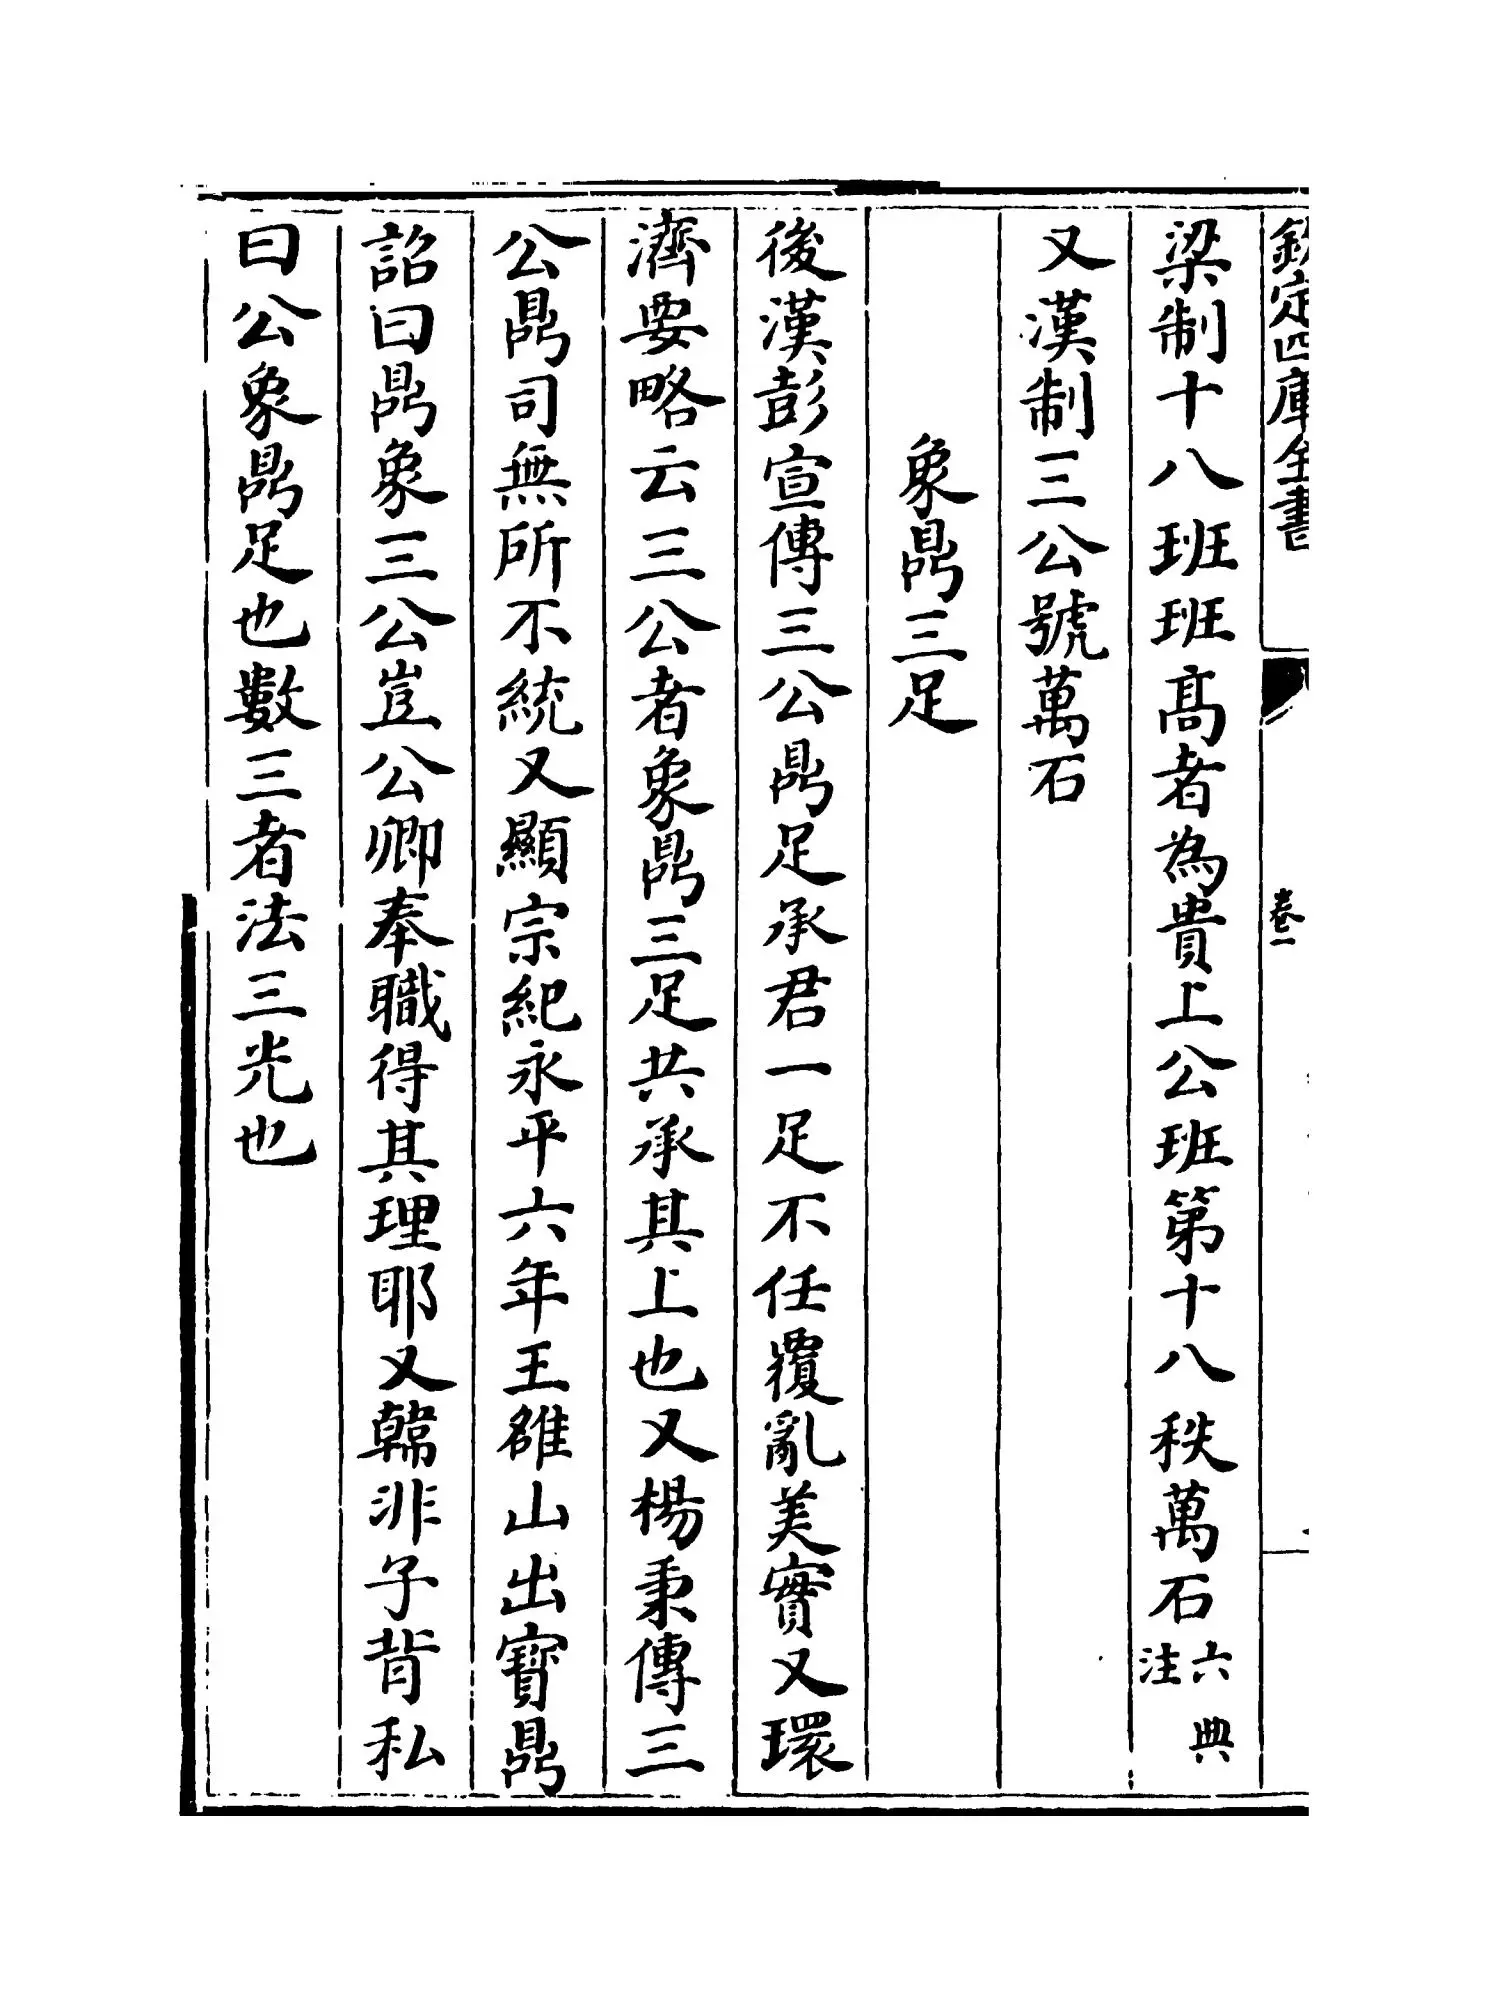 欽定四庫全書
卷一
梁制十八班班髙者為貴上公班第十八秩萬石六典注
又漢制三公號萬石
象鼎三足
後漢彭宣傳三公鼎足承君一足不任覆亂美實又環
濟要略云三公者象鼎三足共承其上也又楊秉傳三
公鼎司無所不統又顯宗紀永平六年王雒山出寳鼎
詔曰鼎象三公豈公卿奉職得其理耶又韓非子背私
曰公象鼎足也數三者法三光也